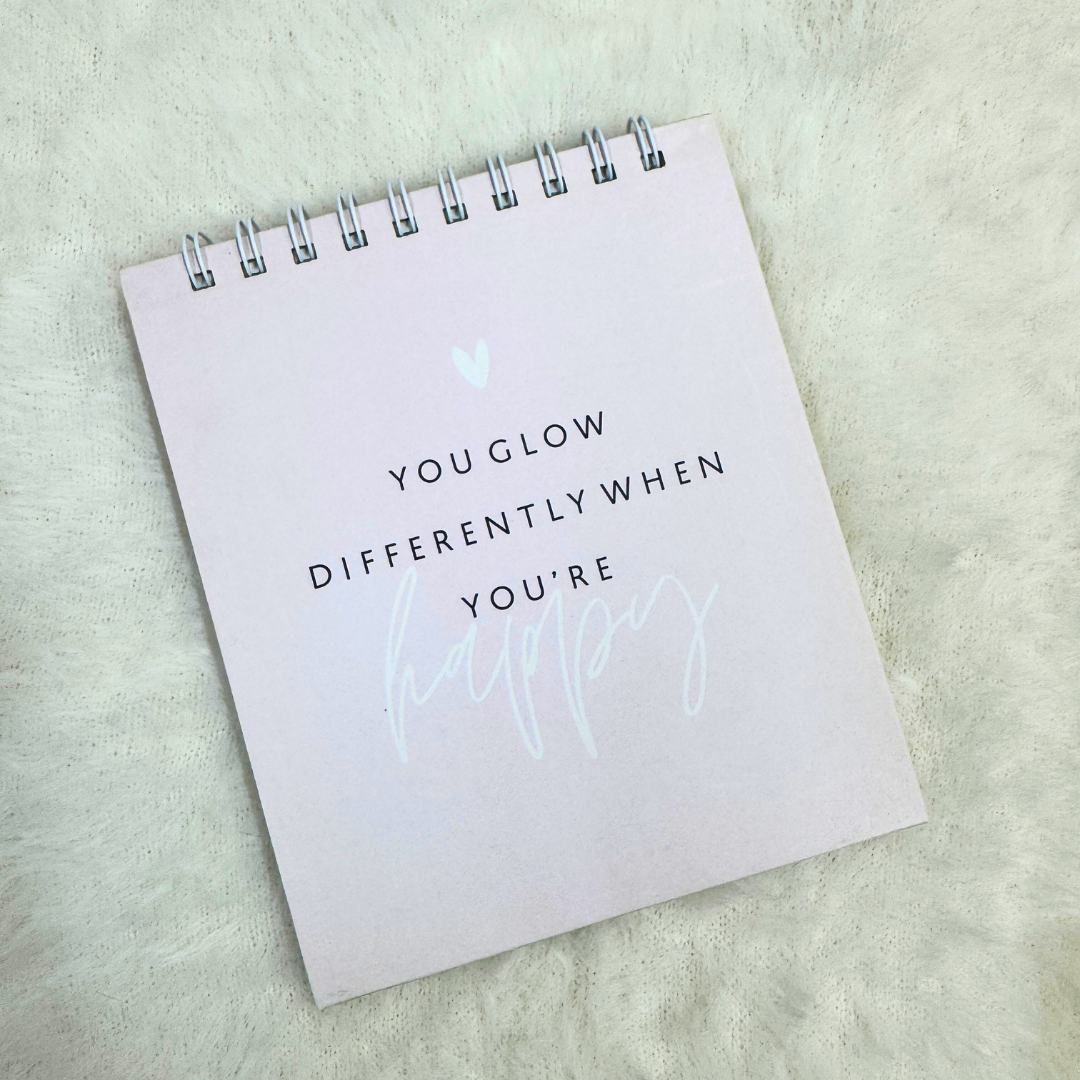 YOU GLOW
DIFFERENTLY WHEN
YOU'RE
happy